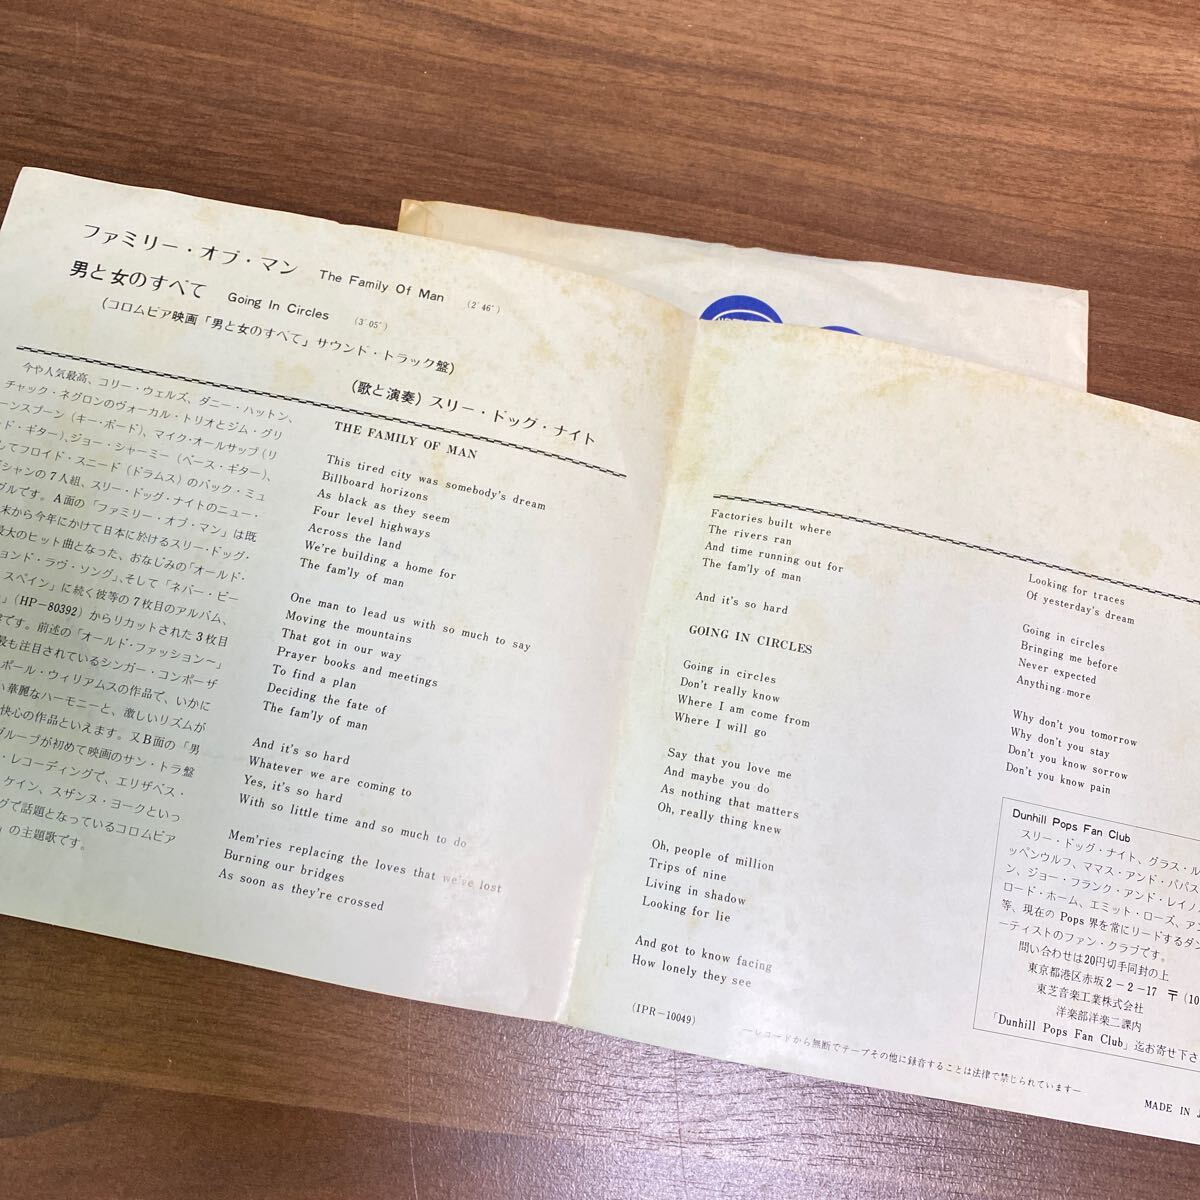 ファミリー・オブ・マン The Family Of Man (2′46″)
男と女のすべて Going In Circles (3′05″)
(コロムビア映画「男と女のすべて」サウンド・トラック盤)
(歌と演奏) スリー・ドッグ・ナイト
今や人気最高、コリー・ウェルズ、ダニー・ハットン、
チャック・ネグロンのヴォーカル・トリオとジム・グリ
ーンスプーン (キー・ボード)、マイク・オールサップ (リ
ド・ギター)、ジョー・シャーミー (ベース・ギター)、
してフロイド・スニード (ドラムス) のバック・ミュ
ジシャンの7人組、スリー・ドッグ・ナイトのニュー・
グルです。A面の「ファミリー・オブ・マン」は既
末から今年にかけて日本に於けるスリー・ドッグ・
最大のヒット曲となった、おなじみの「オールド・
ョンド・ラヴ・ソング」、そして「ネバー・ビー
スペイン」に続く彼等の7枚目のアルバム、
」(HP-80392) からリカットされた3枚目
です。前述の「オールド・ファッション〜
最も注目されているシンガー・コンポーザ
ポール・ウィリアムスの作品で、いかに
い華麗なハーモニーと、激しいリズムが
快心の作品といえます。又B面の「男
グループが初めて映画のサン・トラ盤
・レコーディングで、エリザベス・
ケイン、スザンヌ・ヨークといっ
グで話題となっているコロムビア
」の主題歌です。
THE FAMILY OF MAN
This tired city was somebody's dream
Billboard horizons
As black as they seem
Four level highways
Across the land
We're building a home for
The fam'ly of man
One man to lead us with so much to say
Moving the mountains
That got in our way
Prayer books and meetings
To find a plan
Deciding the fate of
The fam'ly of man
And it's so hard
Whatever we are coming to
Yes, it's so hard
With so little time and so much to do
Mem'ries replacing the loves that we've lost
Burning our bridges
As soon as they're crossed
Factories built where
The rivers ran
And time running out for
The fam'ly of man
And it's so hard
GOING IN CIRCLES
Going in circles
Don't really know
Where I am come from
Where I will go
Say that you love me
And maybe you do
As nothing that matters
Oh, really thing knew
Oh, people of million
Trips of nine
Living in shadow
Looking for lie
And got to know facing
How lonely they see
(IPR-10049)
Looking for traces
Of yesterday's dream
Going in circles
Bringing me before
Never expected
Anything more
Why don't you tomorrow
Why don't you stay
Don't you know sorrow
Don't you know pain
Dunhill Pops Fan Club
スリー・ドッグ・ナイト、グラス・ル
ッペンウルフ、ママス・アンド・パパス
ン、ジョー・フランク・アンド・レイノ
ロード・ホーム、エミット・ローズ、ア
等、現在の Pops 界を常にリードするダン
ーティストのファン・クラブです。
問い合わせは20円切手同封の上
東京都港区赤坂2-2-17 〒(10
東芝音楽工業株式会社
洋楽部洋楽二課内
「Dunhill Pops Fan Club」迄お寄せ下さ
—レコードから無断でテープその他に録音することは法律で禁じられています—
MADE IN J